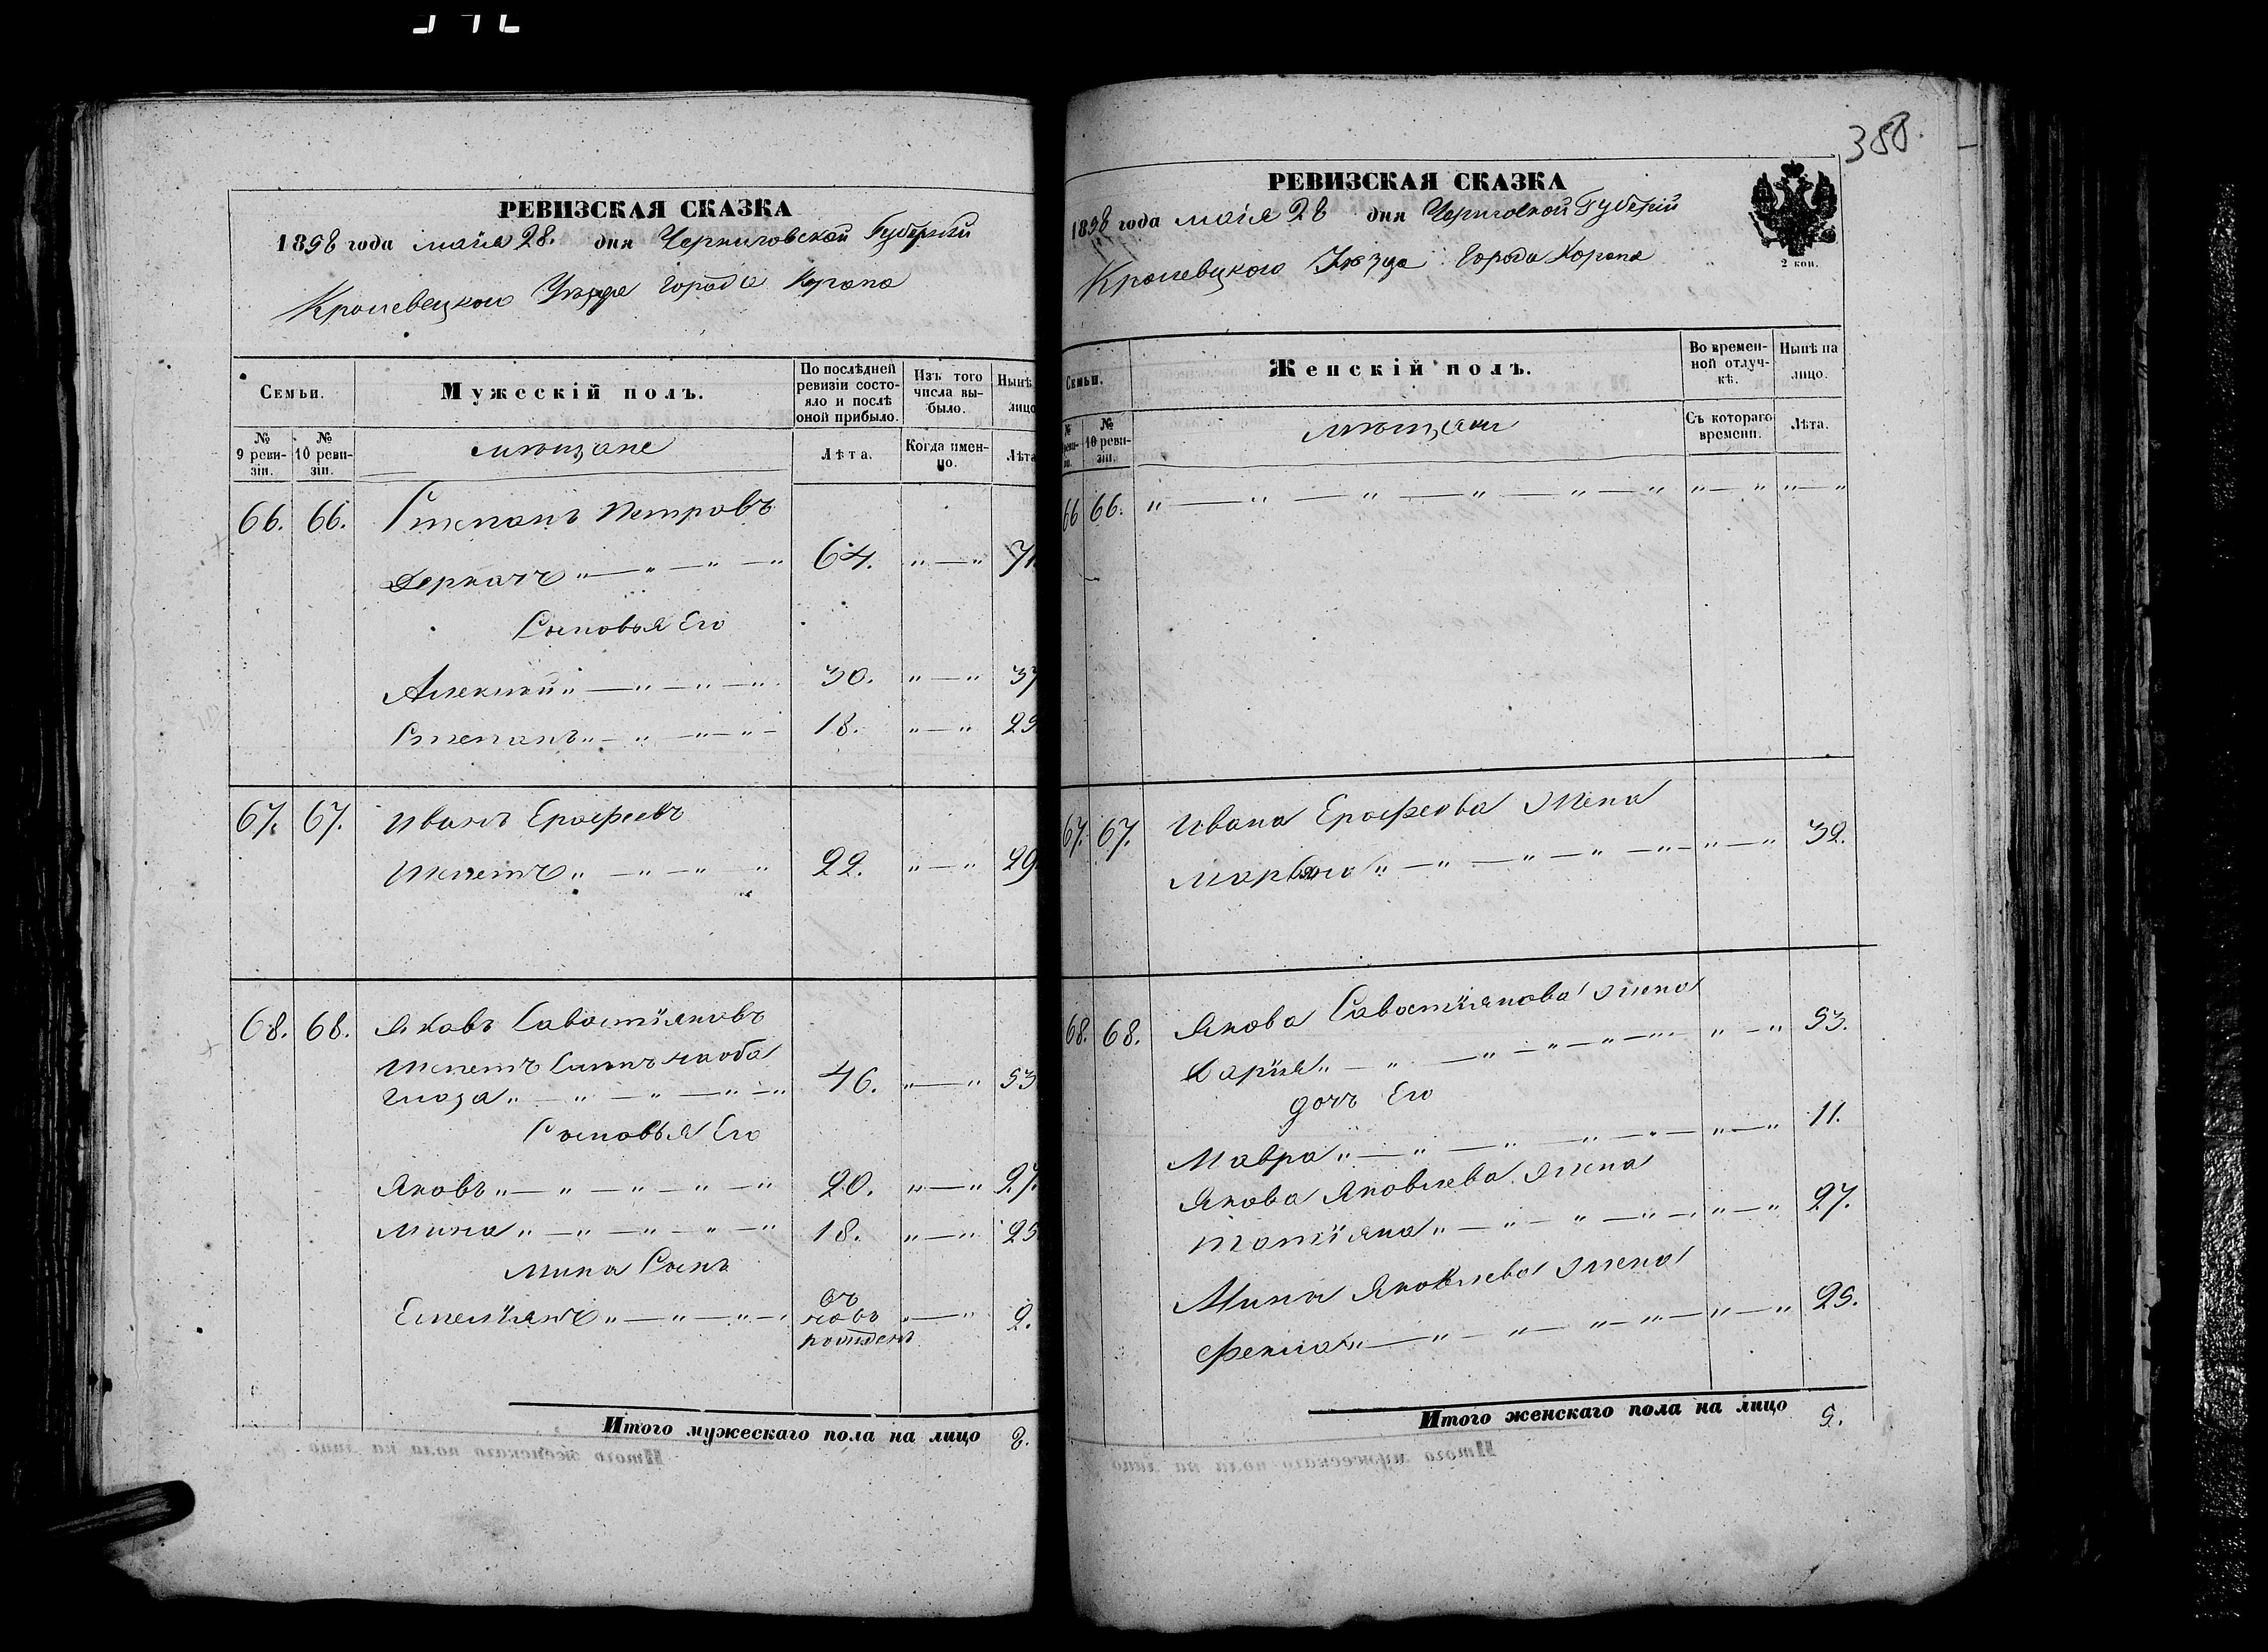 388.
РЕВИЗСКАЯ СКАЗКА
1858 года маія 28. дня Черниговской Губерніи
Кролевецкого Уѣзда города Коропа
Семьи.
Мужескій полъ.
По послѣдней ревизіи состо-
яло и послѣ
оной прибыло.
Изъ того
числа вы-
было.
Нынѣ
лицо
№
9 реви-
зіи.
№
10 реви-
зіи.
мѣщане
Лѣта.
Когда имен-
но.
Лѣта
66. 66. Степанъ Петровъ
Деркачъ „ — „ — „ — „ 64. „ — „ 71
Сыновья Его
Алексѣй „ — „ — „ — „ 30. „ — „ 37
Степанъ „ — „ — „ — „ — 18. „ — „ 25
67. 67. Иванъ Ерофеевъ
Шепетъ „ — „ — „ — „ 22. „ — „ 29.
68. 68. Яковъ Савостіяновъ
Шепетъ
46. „ — „ 53
Сыновья Его
Яковъ „ — „ — „ — „ — „ 20. „ — „ 27.
Мина „ — „ — „ — „ — „ 18. „ — „ 25
Мина Сынъ
Емеліянъ „ — „ — „ — „ 2.
Итого мужескаго пола на лицо 8.
РЕВИЗСКАЯ СКАЗКА
1858 года маія 28 дня Черниговской Губерніи
Кролевецкого Уѣзда города Коропа
2 коп.
Семьи.
Женскій полъ.
Во времен-
ной отлуч-
кѣ.
Нынѣ на
лицо.
№
№
10 реви-
зіи.
мѣщане
Съ котораго
времени.
Лѣта.
66 66. „ — „ — „ — „ — „ — „ „ — „ „ — „
67. 67. Ивана Ерофеова жена
„ — „ — „ — „ — „ — „ — „ 32.
68. 68. Якова Савостіянова жена
Дарія „ — „ — „ — „ — „ — „ „ — „ 53.
дочь Его
Мавра „ — „ — „ — „ — „ — „ — „ 11.
Якова Яковлева жена
Татіяна „ — „ — „ — „ — „ — „ 27.
Мина Яковлева жена
Фекла „ — „ — „ — „ — „ — „ — „ 25.
Итого женскаго пола на лицо 5.